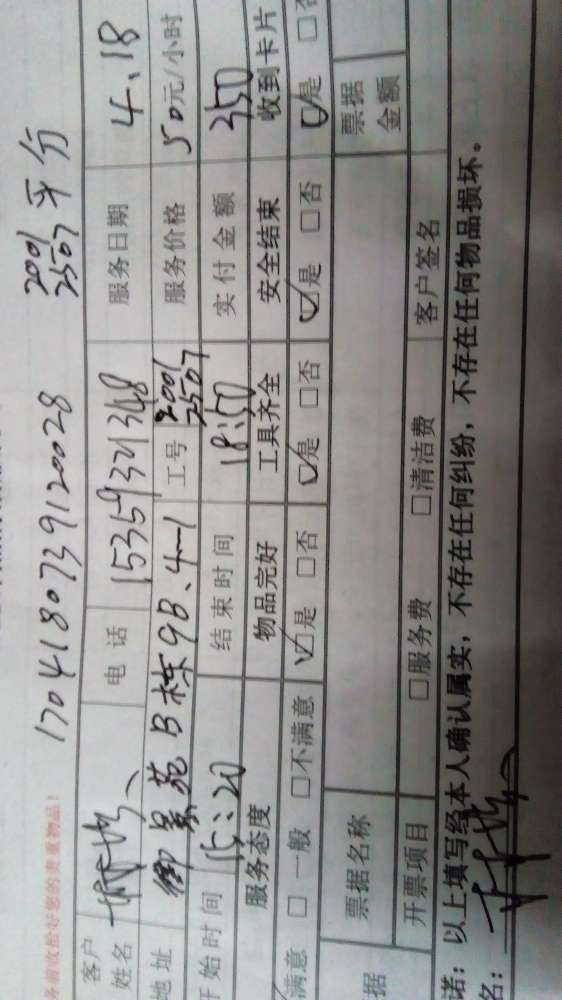 务前收拾好您的贵重物品!
1704180739120028 2001 2507 平分
客户姓名 电话 15359321348 服务日期 4.18
地址 御景苑B栋9B、4-1 工号 2001 2507 服务价格 50元/小时
开始时间 15:20 结束时间 18:50 实付金额 350
服务态度 物品完好 工具齐全 安全结束 收到卡片
满意 □一般 □不满意 ☑是 □否 ☑是 □否 ☑是 □否 ☑是 □否
据 票据名称 票据金额
开票项目 □服务费 □清洁费 客户签名
诺:以上填写经本人确认属实,不存在任何纠纷,不存在任何物品损坏。
名: